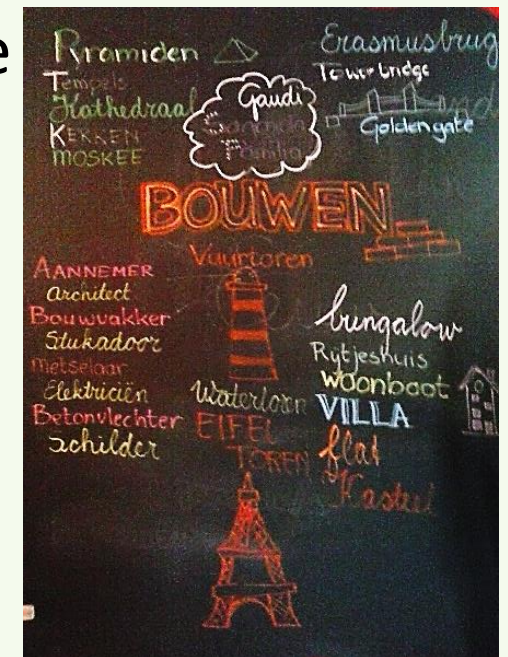 e
Pyramiden
Tempels
Kathedraal
KERKEN
MOSKEE
Gaudi
Sagrada
Familia
Erasmusbrug
Towerbridge
Golden gate
BOUWEN
Vuurtoren
AANNEMER
Architect
Bouwvakker
Stukadoor
Metselaar
Elektriciën
Betonvlechter
Schilder
Watertoren
EIFEL
TOREN
bungalow
Rytjeshuis
Woonboot
VILLA
flat
Kasteel